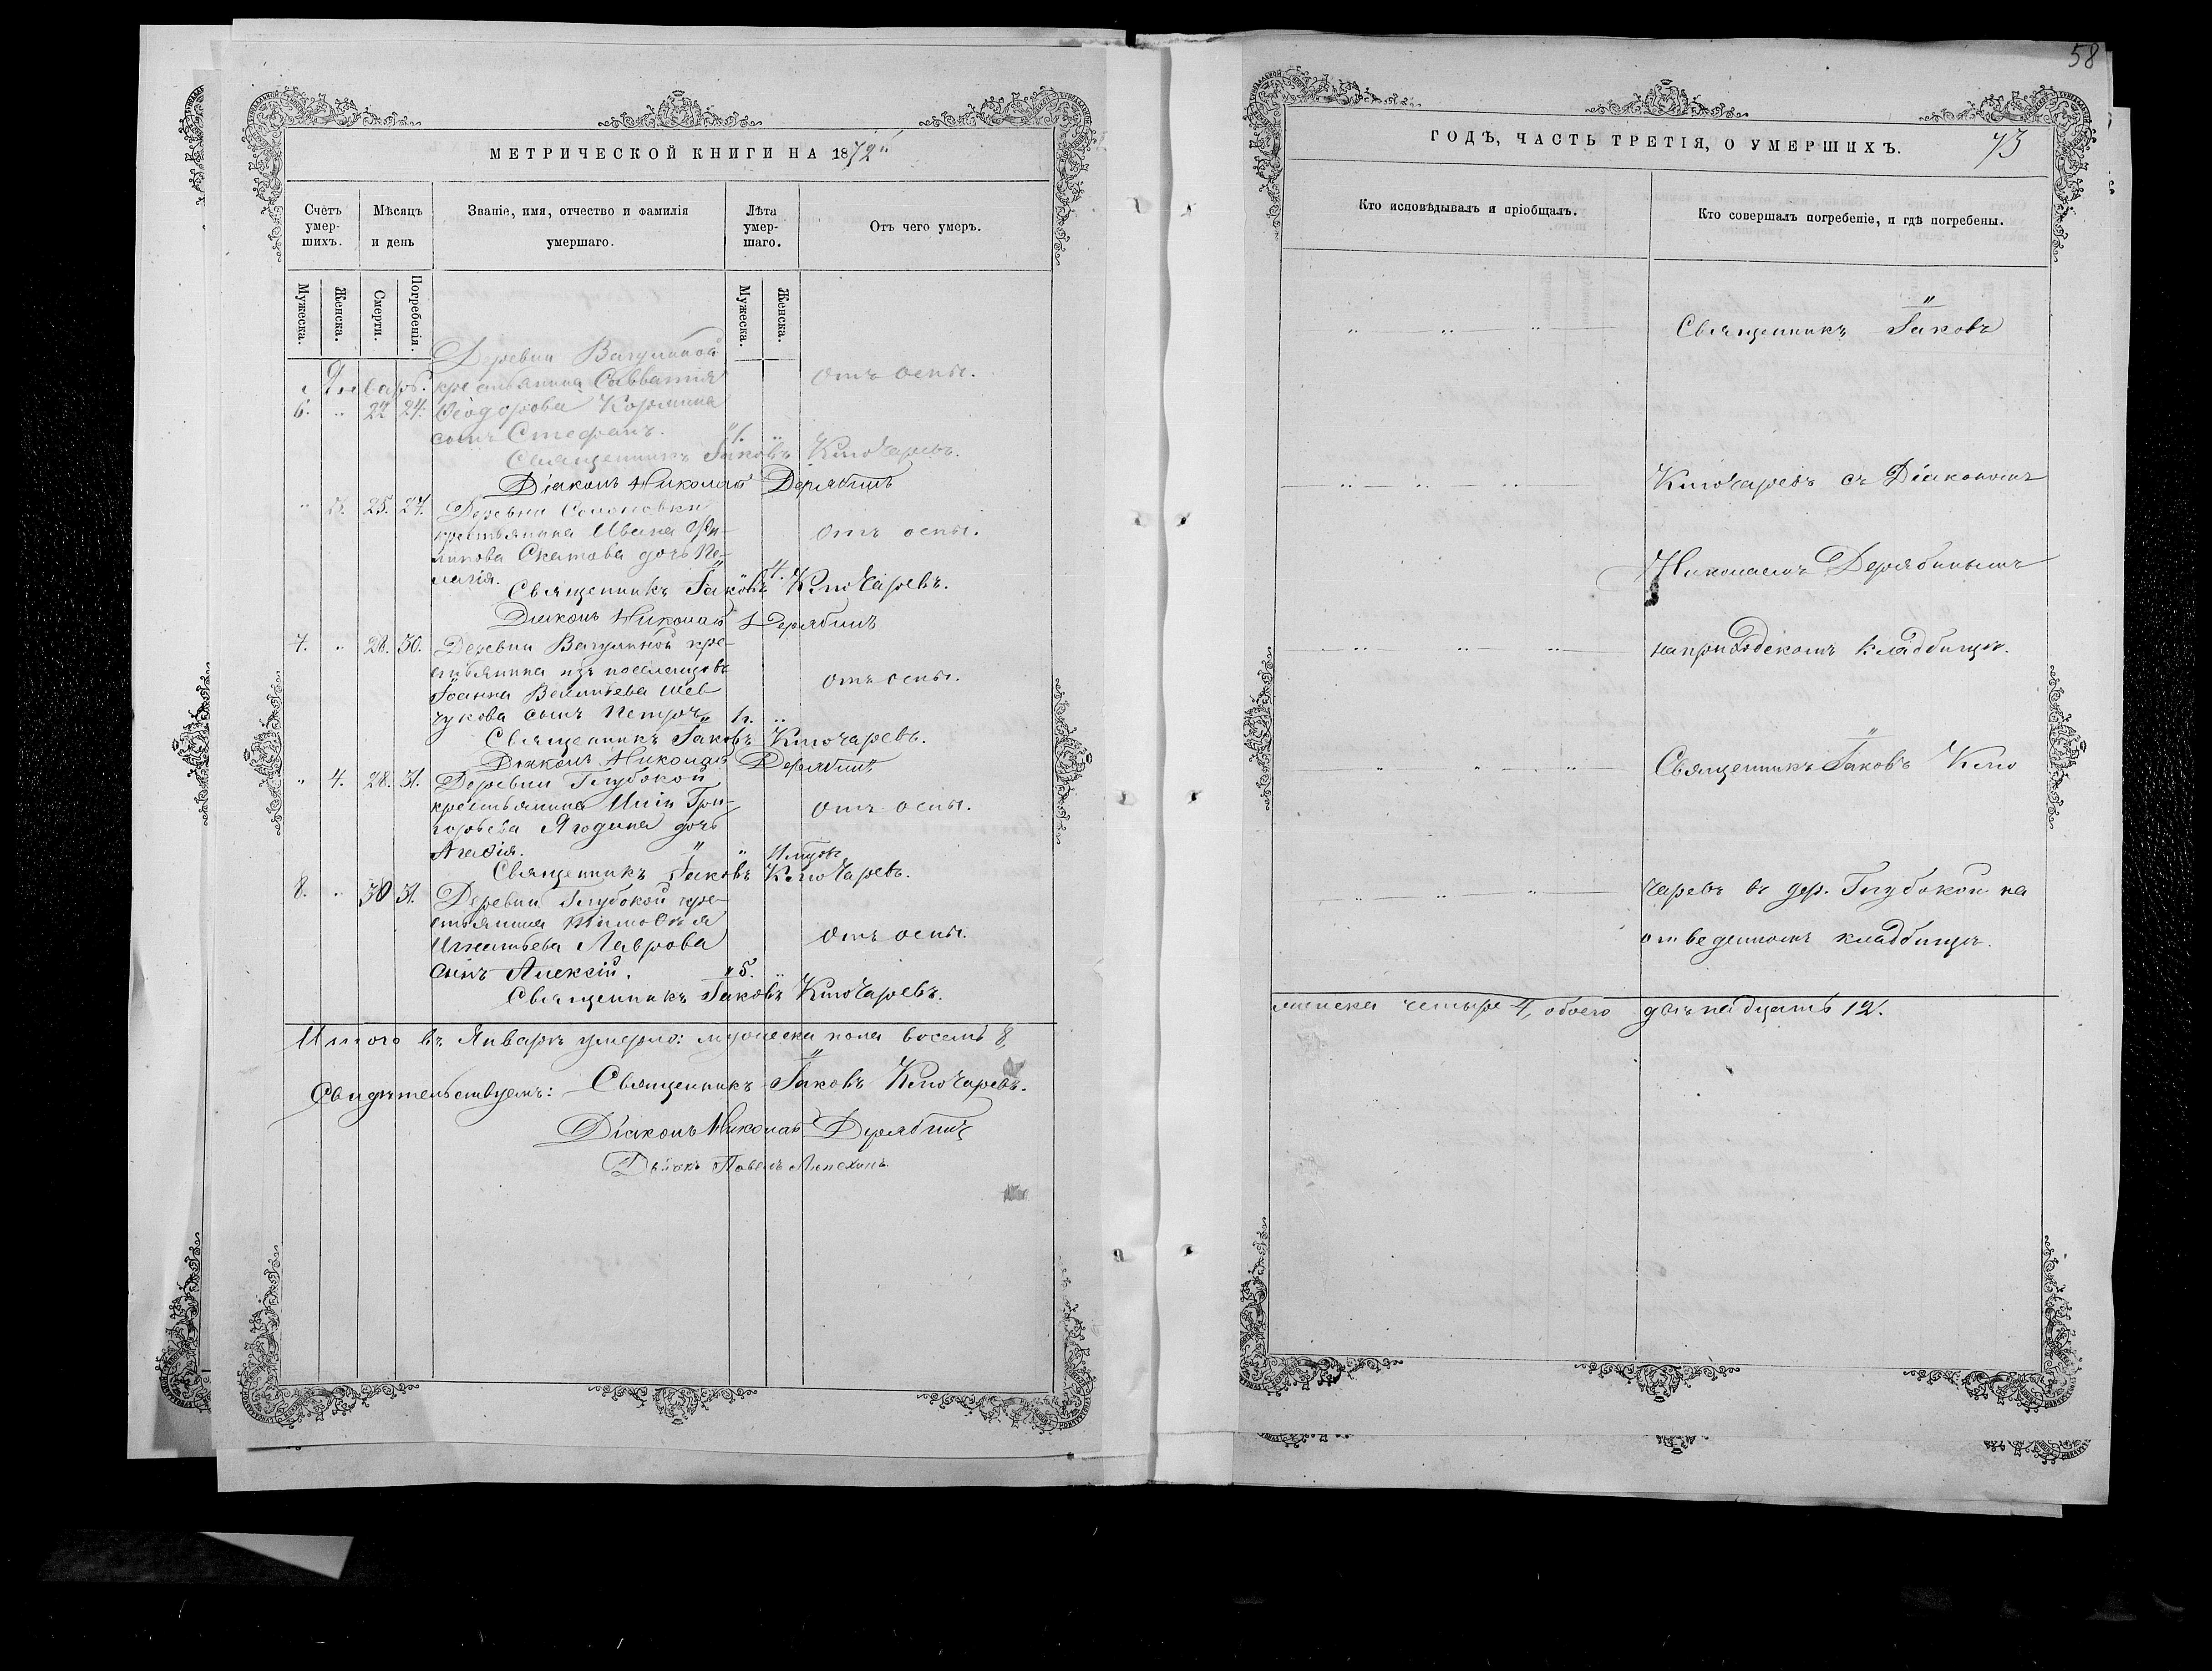 МЕТРИЧЕСКОЙ КНИГИ НА 1872
Счетъ умер-шихъ.
Мѣсяцъ и день
Званіе, имя, отчество и фамилія умершаго.
Лѣта умер-шаго.
Отъ чего умеръ.
Мужеска.
Женска.
Смерти.
Погребенія.
Мужеска.
Женска.
Январь.
Деревни Вагулиной
крестьянина Савватія отъ оспы.
6. " 22 24. Ѳеодорова Кормина
сынъ Стефанъ. 1. "
Священникъ Іаковъ Ключаревъ.
Діаконъ Николай Дерябинъ
" 3. 25. 27. Деревни
крестьянина Ивана отъ оспы.
Скатова дочь Пе-
лагія. 4.
Священникъ Іаковъ Ключаревъ.
Діаконъ Николай Дерябинъ
7. " 28. 30. Деревни Вагулиной кре-
стьянина изъ поселенцовъ
Іоанна Васильева Шев отъ оспы.
чукова сынъ Петръ "
Священникъ Іаковъ Ключаревъ.
Діаконъ Николай Дерябинъ
" 4. 28. 31. Деревни Глубокой
крестьянина Иліи Гри- отъ оспы.
горьева Ягодина дочь
Агаѳія. "
Священникъ Іаковъ Ключаревъ.
8. " 30 31. Деревни Глубокой кре-
стьянина Тимоѳея
Игнатьева Лаврова отъ оспы.
сынъ Алексій. 5. "
Священникъ Іаковъ Ключаревъ.
Итого въ Январѣ умерло: мужеска пола восемь 8,
Свидѣтельствуемъ: Священникъ Іаковъ Ключаревъ.
Діаконъ Николай Дерябинъ
Павелъ
58
ГОДЪ, ЧАСТЬ ТРЕТІЯ, О УМЕРШИХЪ. 73
Кто исповѣдывалъ и пріобщалъ.
Кто совершалъ погребеніе, и гдѣ погребены.
Священникъ Іаковъ
Ключаревъ съ Діакономъ
Николаемъ Дерябинымъ
на приходскомъ кладбищѣ.
Священникъ Іаковъ Клю
чаревъ въ дер. Глубокой на
отведенномъ кладбищѣ.
женска четыре 4, обоего двѣнадцать 12.